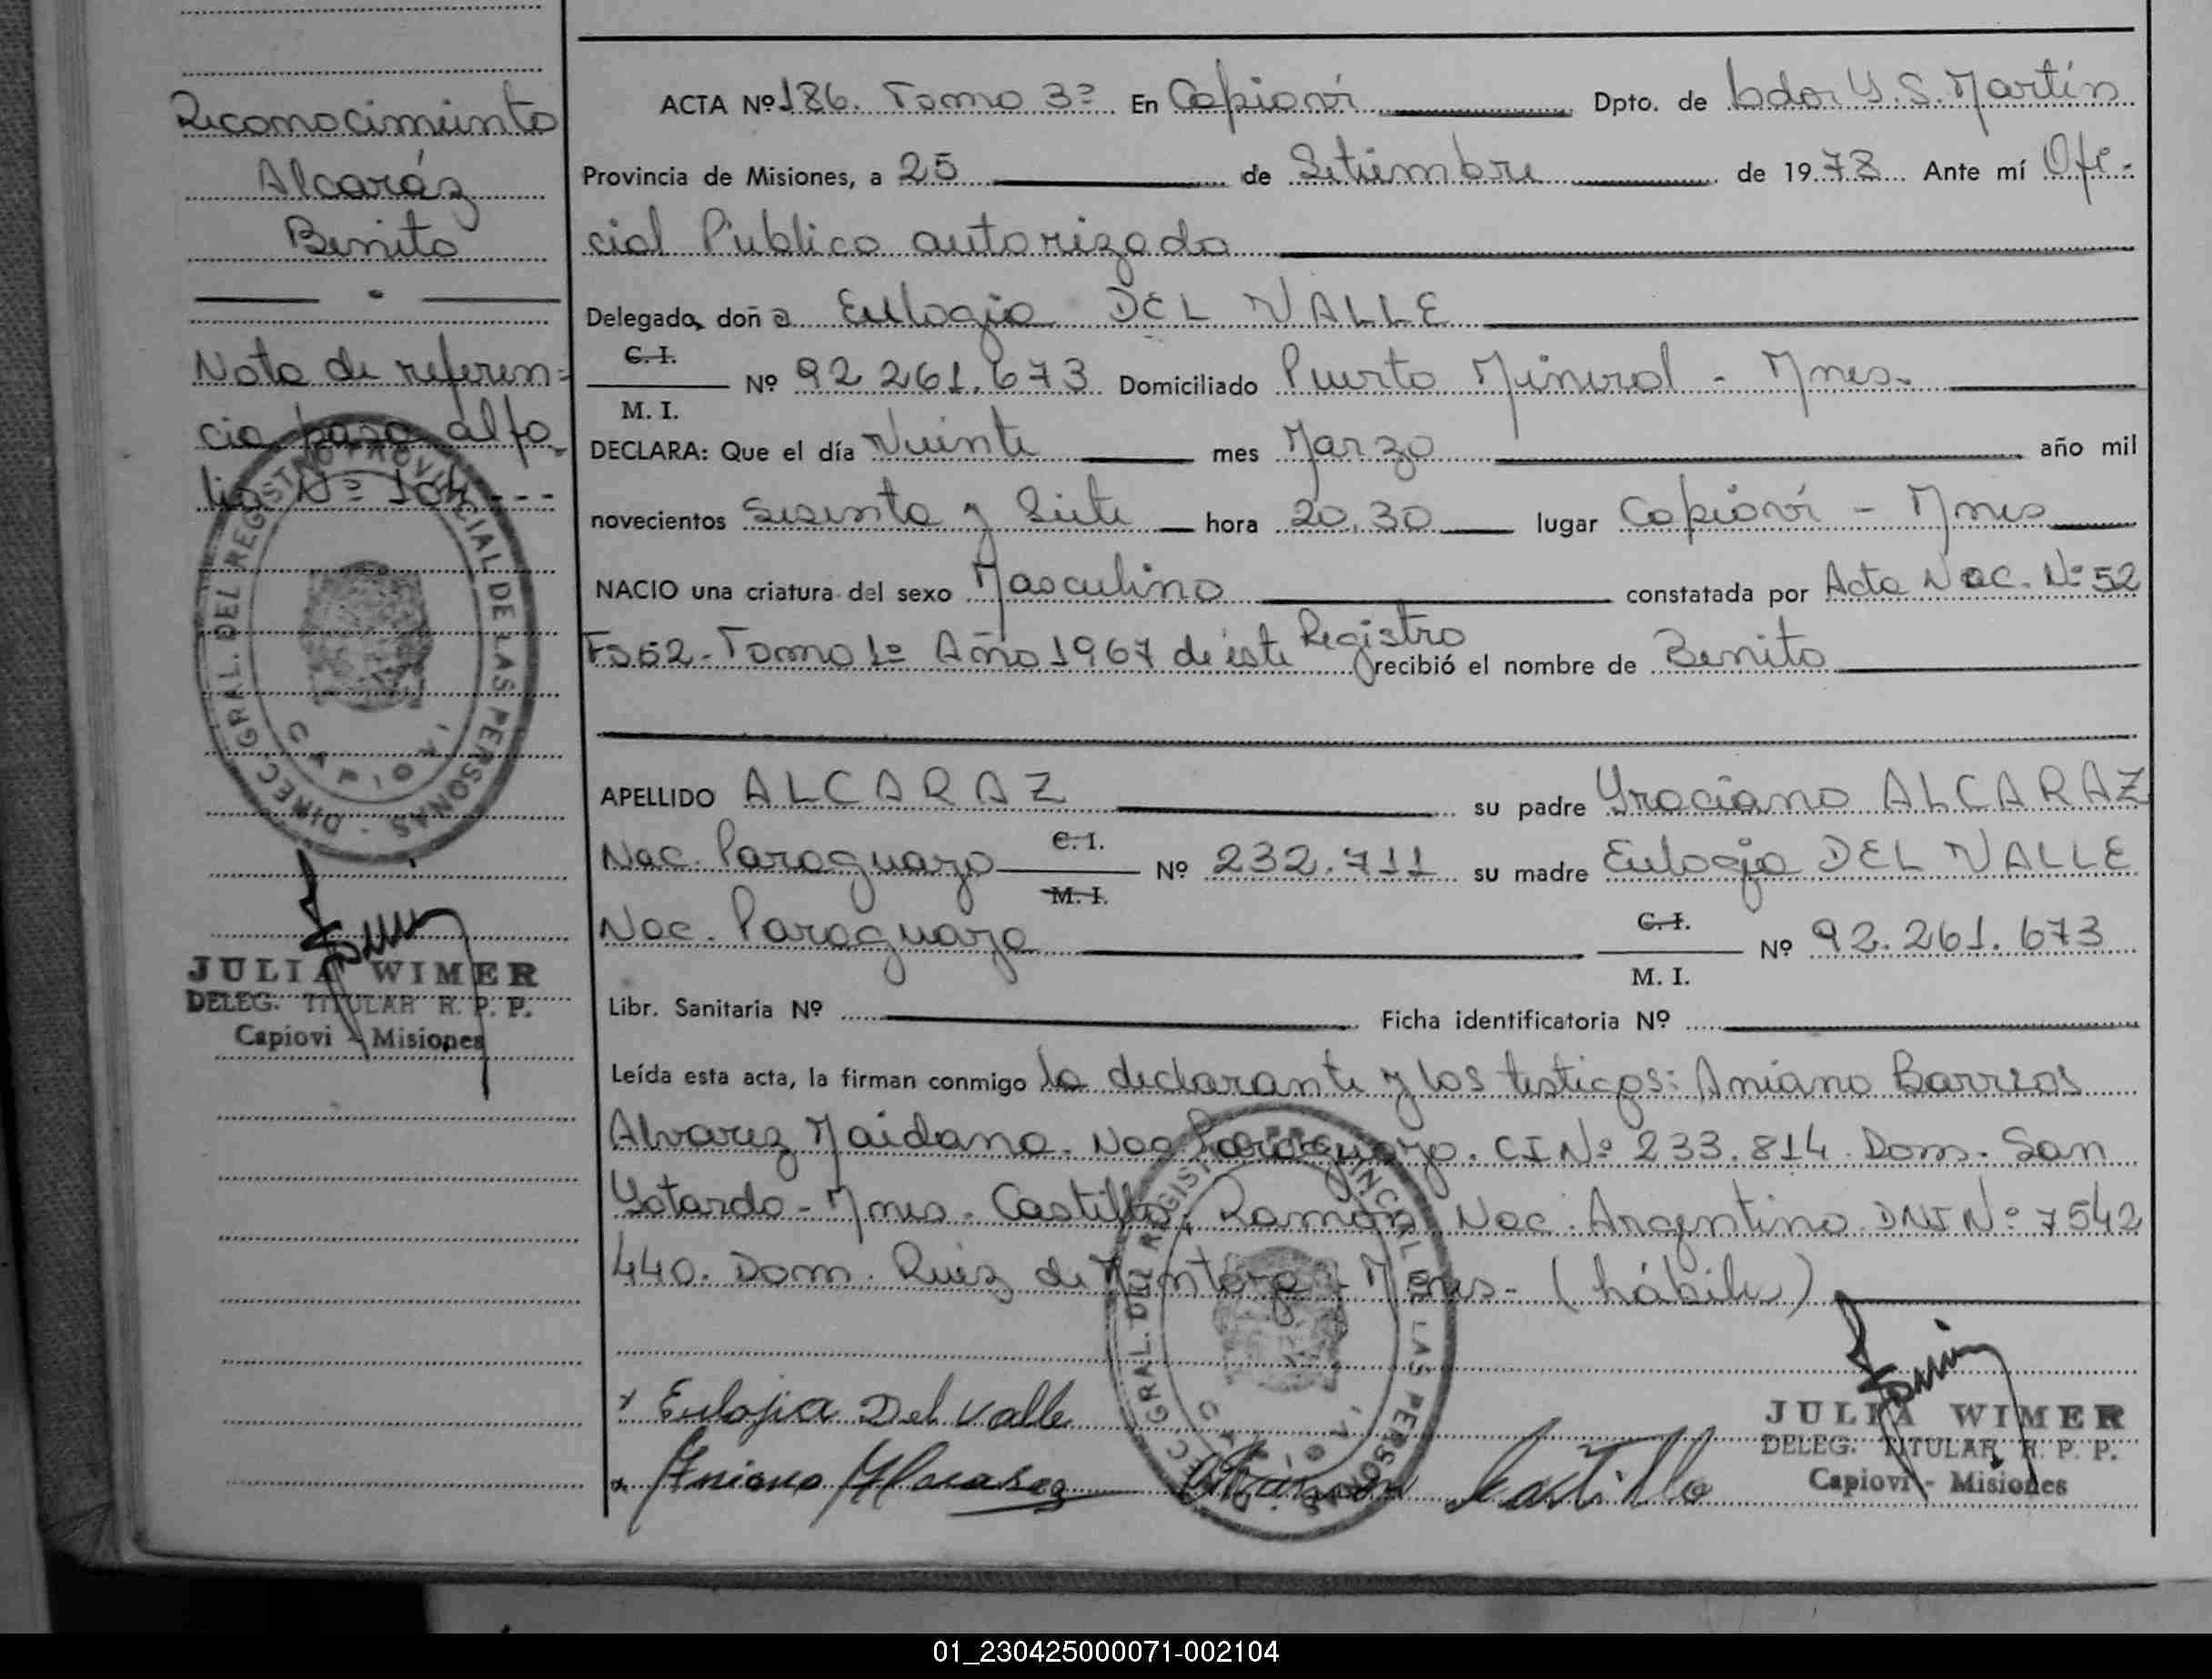 Reconocimiento
Alcaráz
Benito
Nota de referen=
cia pasa al fo_
lio Nº 104 ---
DIREC. GRAL. DEL REGISTRO PROVINCIAL DE LAS PERSONAS
CAPIOVÍ
JULIA WIMER
DELEG. TITULAR R. P. P.
Capiovi - Misiones
ACTA Nº 186. Tomo 3º En Capioví Dpto. de Ldor G. S. Martín
Provincia de Misiones, a 25 de Setiembre de 1978 Ante mí Ofi-
cial Publico autorizado
Delegado, doña Eulogia DEL VALLE
C. I.
M. I. Nº 92 261.673 Domiciliado Puerto Mineral - Mnes.
DECLARA: Que el día Veinte mes Marzo año mil
novecientos Sesenta y Siete hora 20,30 lugar Capioví - Mnes
NACIO una criatura del sexo Masculino constatada por Acta Nac. Nº 52
Fs 52 - Tomo 1º Año 1967 de éste Registro recibió el nombre de Benito
APELLIDO ALCARAZ su padre Graciano ALCARAZ
Nac. Paraguayo C. I. M. I. Nº 232.711 su madre Eulogia DEL VALLE
Nac. Paraguaya C. I. M. I. Nº 92.261.673
Libr. Sanitaria Nº Ficha identificatoria Nº
Leída esta acta, la firman conmigo la declarante y los testigos: Aniano Barrios
Alvarez Maidana. Nac Paraguayo. CI Nº 233.814 Dom. San
Gotardo - Mnes. Castillo, Ramón, Nac. Argentino DNI Nº 7542
440. Dom. Ruiz de Montoya - Mnes - (hábiles)
x Eulojia Del Valle
x Aniano Ramon Castillo
DIREC. GRAL. DEL REGISTRO PROVINCIAL DE LAS PERSONAS
CAPIOVÍ
JULIA WIMER
DELEG. TITULAR R. P. P.
Capiovi - Misiones
01_230425000071-002104